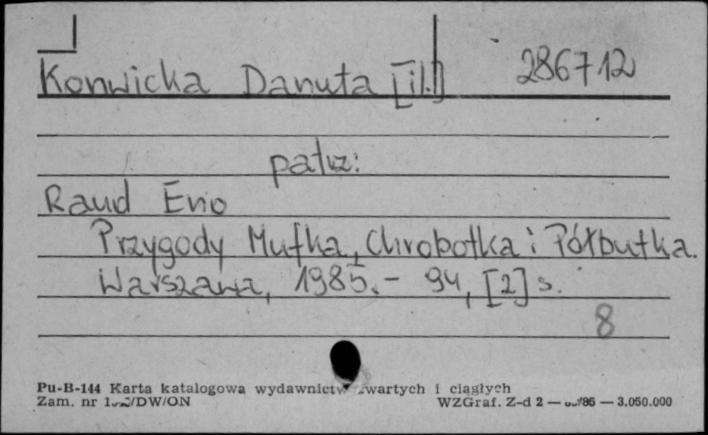 Konwicka Danuta [il.] 286712
patrz:
Raud Eno
Przygody Mufka, Chrobotka i Półbutka.
Warszawa, 1985.- 94, [2] s.
8
Pu-B-144 Karta katalogowa wydawnictw zwartych i ciągłych
Zam. nr WZGraf. Z-d 2 — — 3.050.000